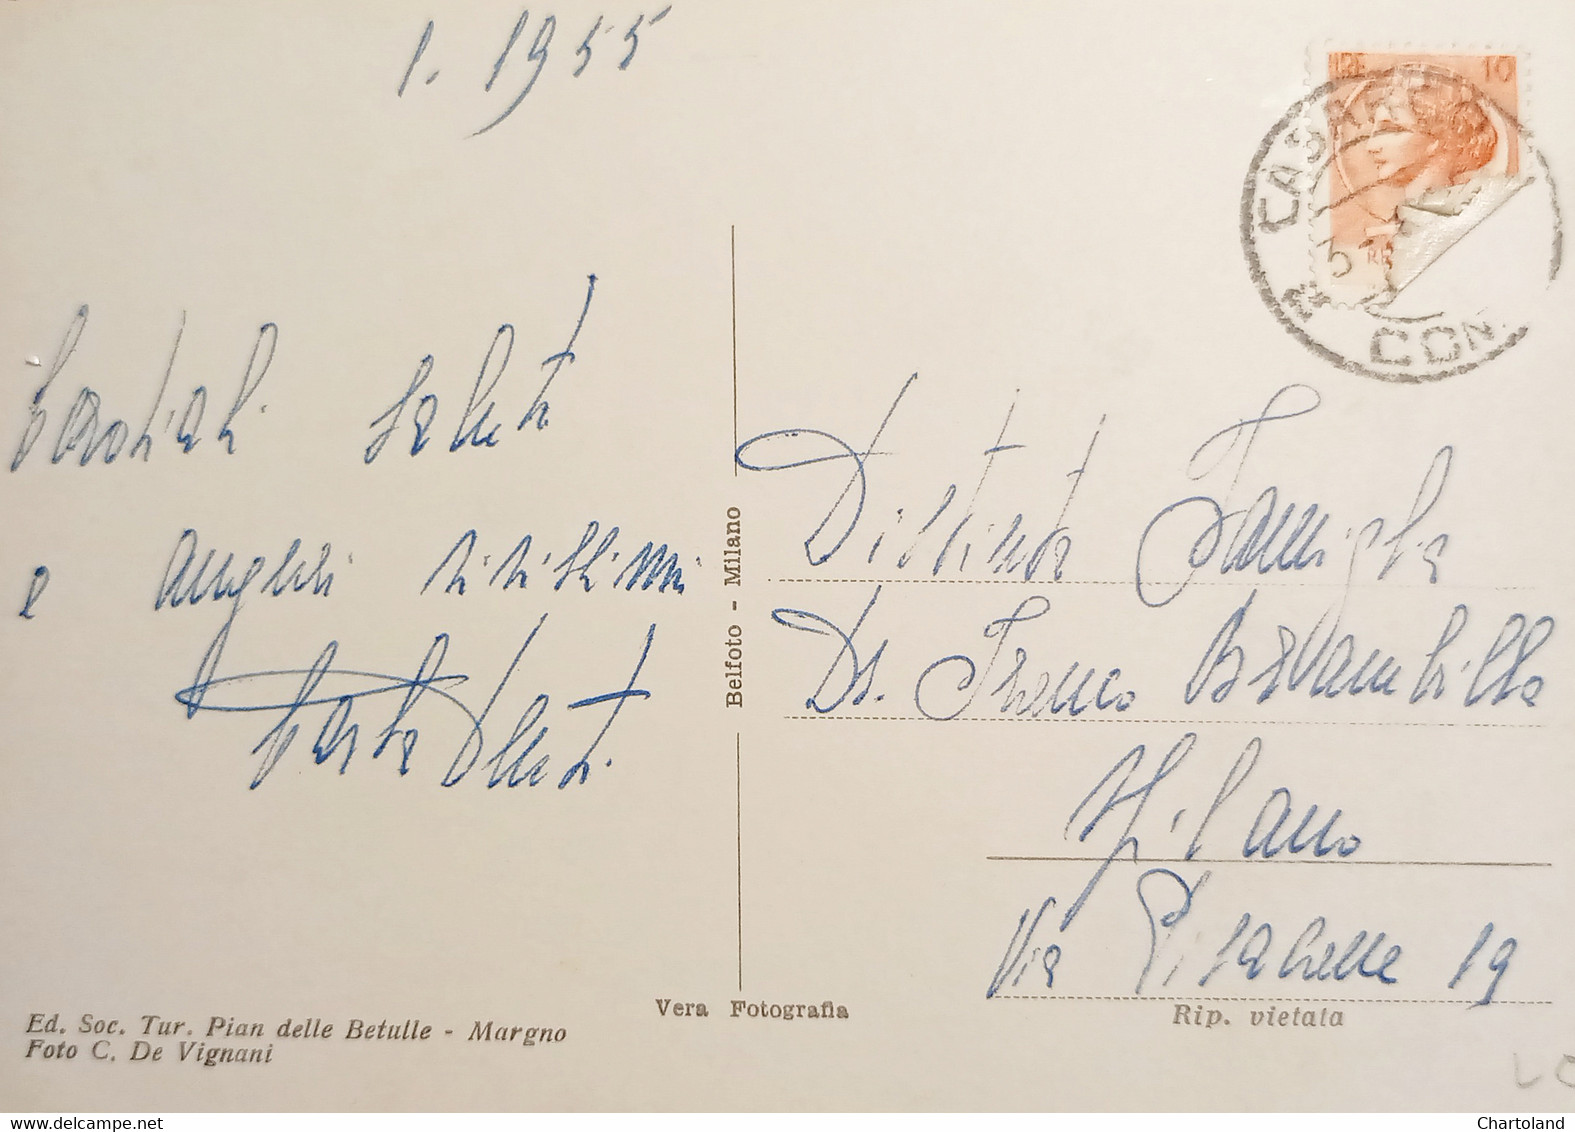 1. 1955
LIRE 10
CASARGO
COM
Cordiali saluti
e auguri vivissimi
Distinta Famiglia
Dr. Franco Brambilla
Milano
Via 19
Belfoto - Milano
Vera Fotografia
Rip. vietata
Ed. Soc. Tur. Pian delle Betulle - Margno
Foto C. De Vignani
Chartoland